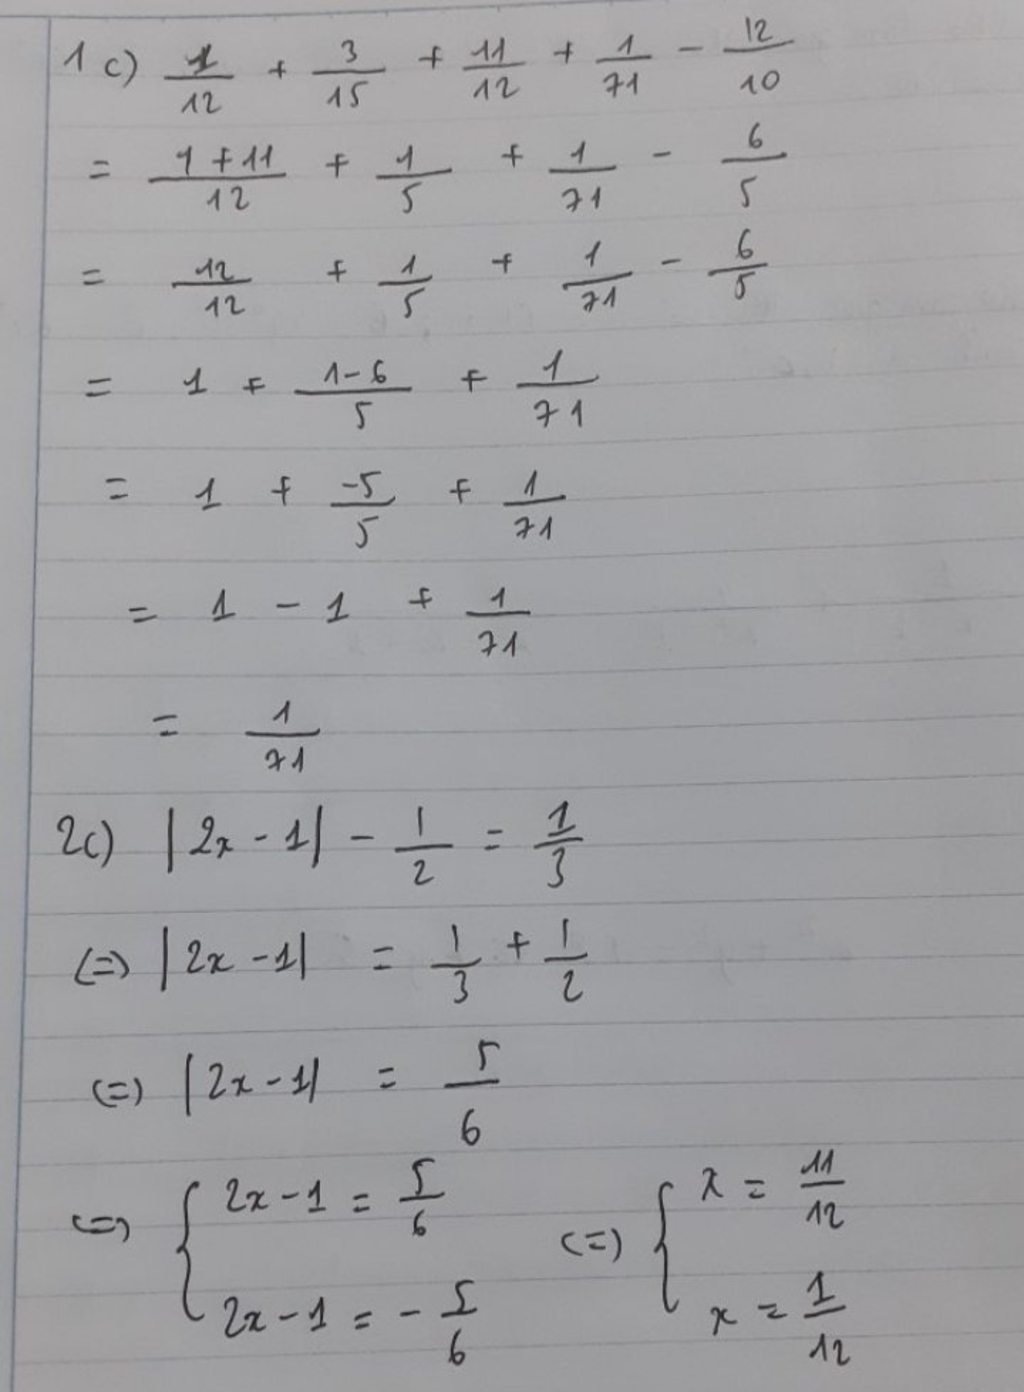 1 c) 1/12 + 3/15 + 11/12 + 1/71 - 12/10
= (1+11)/12 + 1/5 + 1/71 - 6/5
= 12/12 + 1/5 + 1/71 - 6/5
= 1 + (1-6)/5 + 1/71
= 1 + -5/5 + 1/71
= 1 - 1 + 1/71
= 1/71
2c) |2x - 1| - 1/2 = 1/3
(=) |2x - 1| = 1/3 + 1/2
(=) |2x - 1| = 5/6
(=) { 2x - 1 = 5/6 (=) { x = 11/12
2x - 1 = - 5/6 x = 1/12